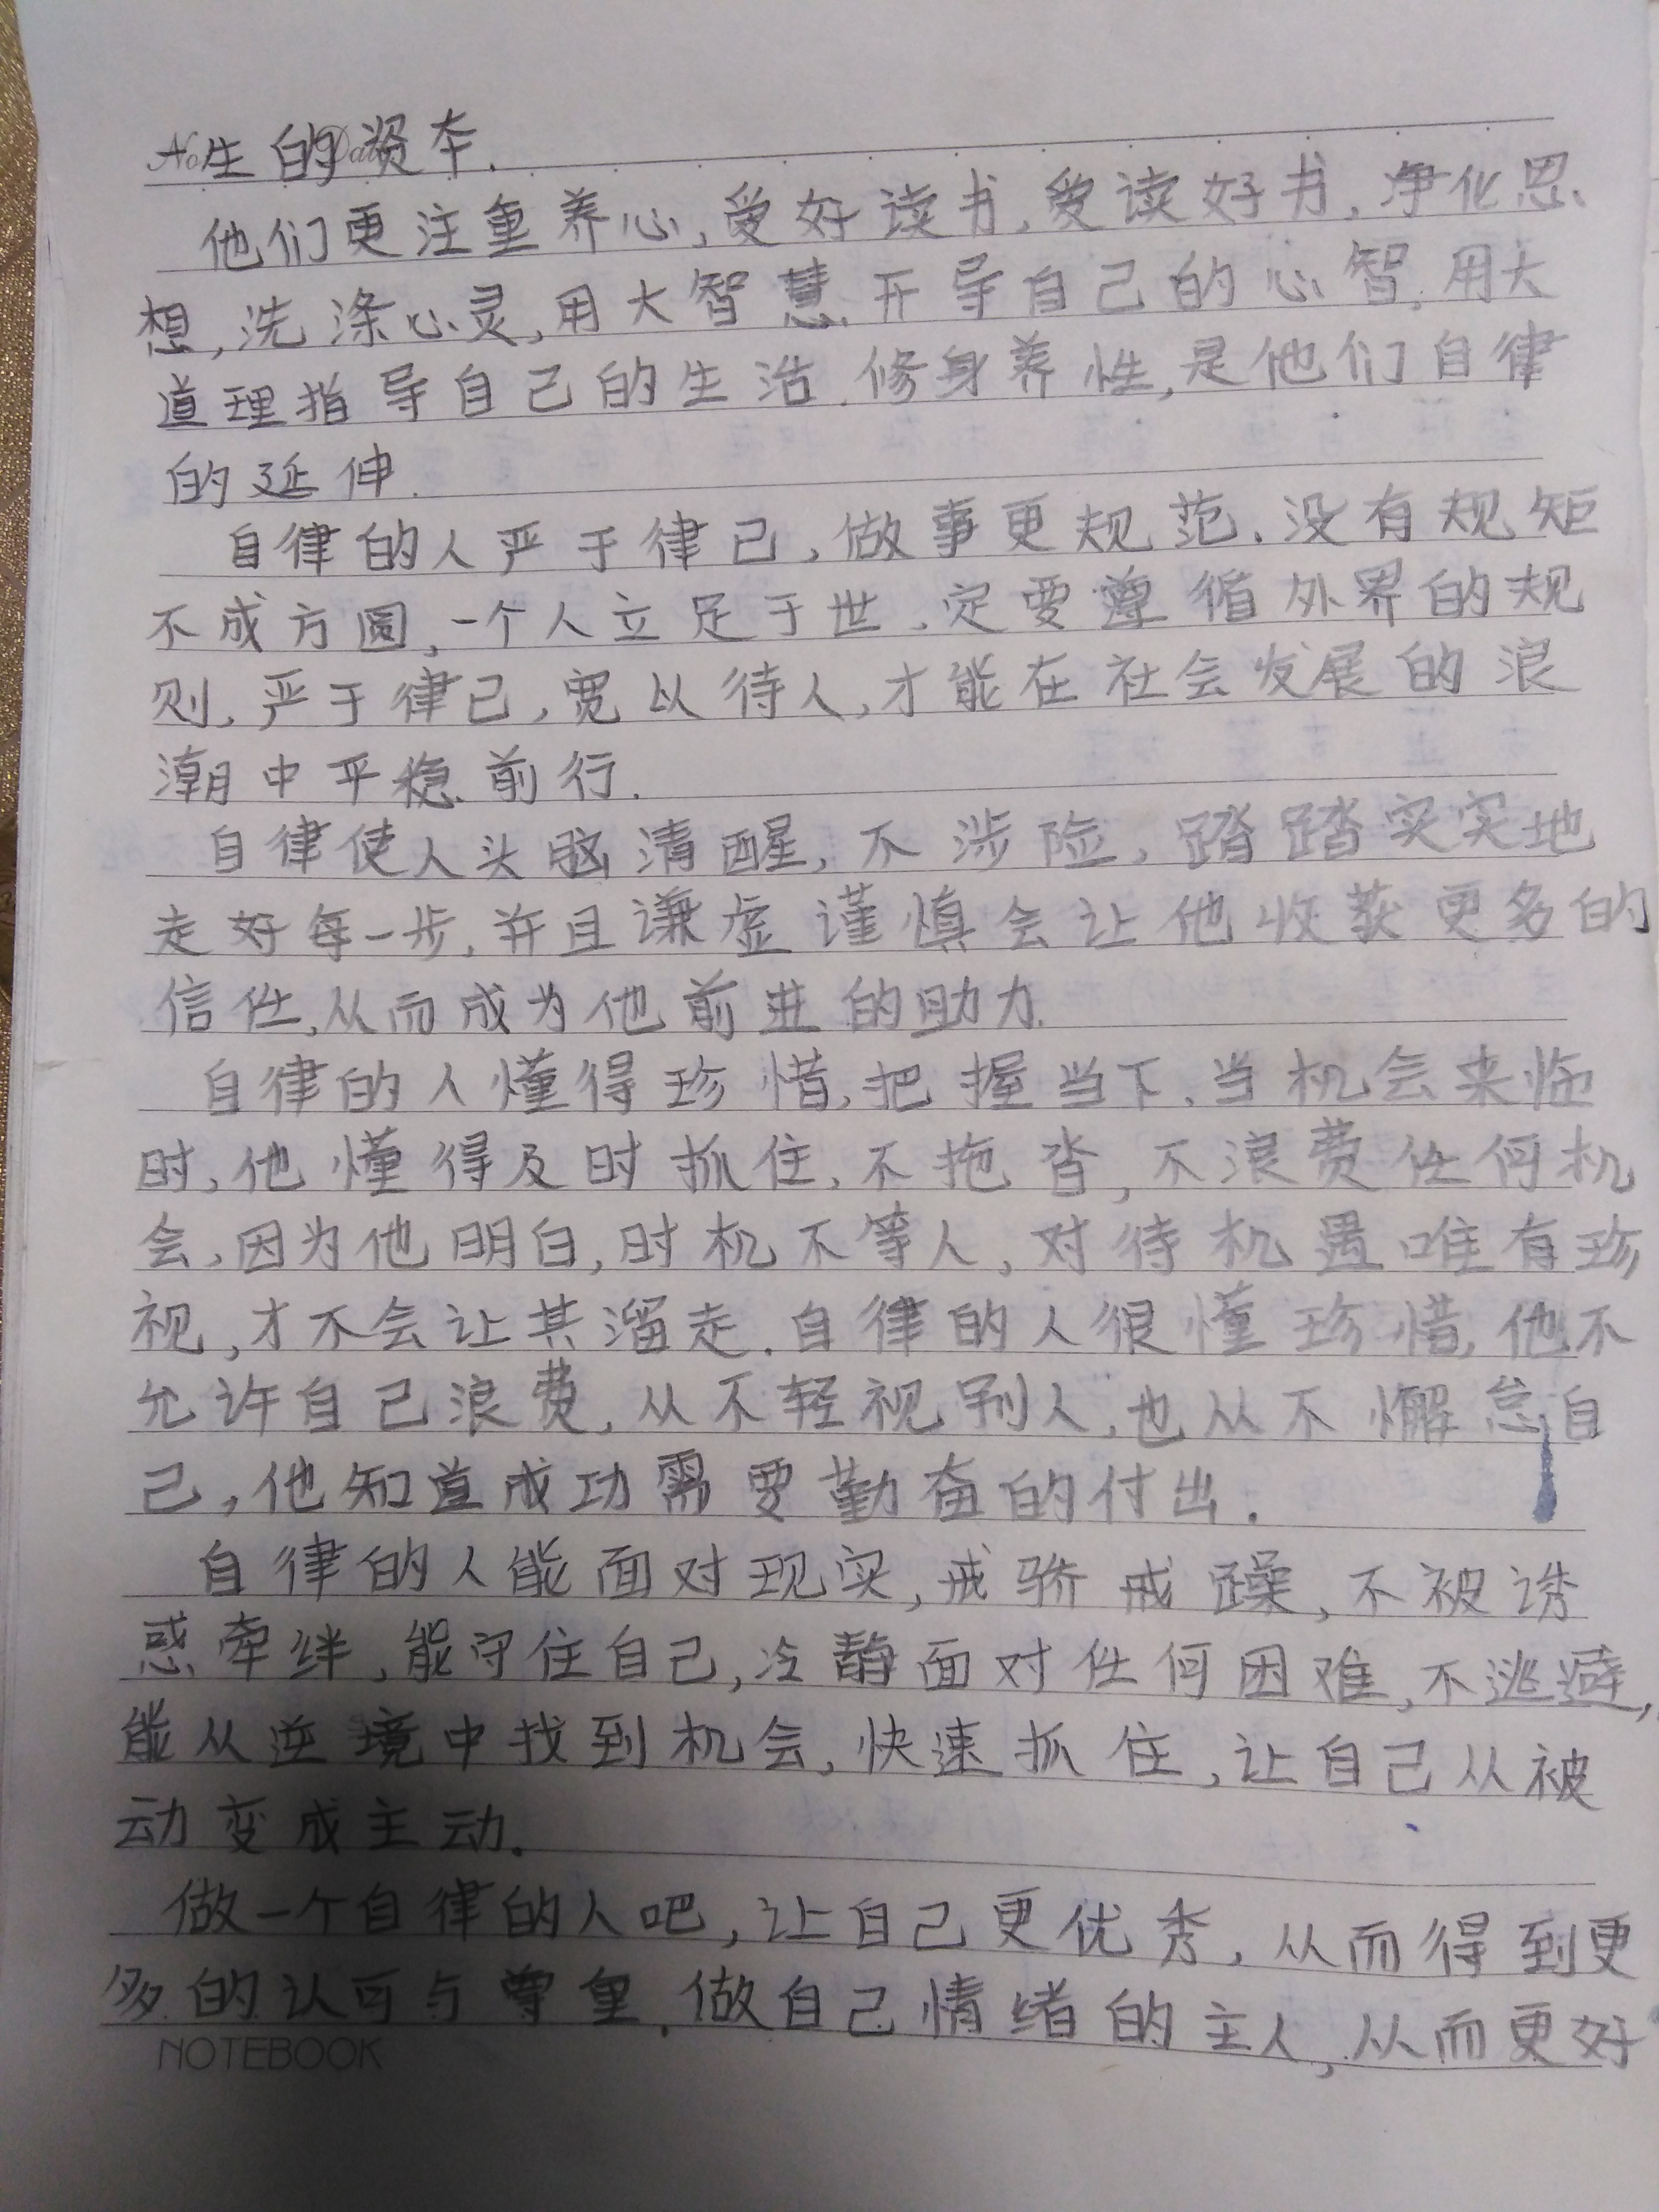 No生的Dat资本.
他们更注重养心,爱好读书,爱读好书,净化思
想,洗涤心灵,用大智慧开导自己的心智,用大
道理指导自己的生活.修身养性,是他们自律
的延伸.
自律的人严于律己,做事更规范.没有规矩
不成方圆,一个人立足于世,定要遵循外界的规
则,严于律己,宽以待人,才能在社会发展的浪
潮中平稳前行.
自律使人头脑清醒,不涉险,踏踏实实地
走好每一步,并且谦虚谨慎会让他收获更多的
信任,从而成为他前进的助力.
自律的人懂得珍惜,把握当下.当机会来临
时,他懂得及时抓住,不拖沓,不浪费任何机
会,因为他明白,时机不等人,对待机遇唯有珍
视,才不会让其溜走.自律的人很懂珍惜,他不
允许自己浪费,从不轻视别人,也从不懈怠自
己,他知道成功需要勤奋的付出.
自律的人能面对现实,戒骄戒躁,不被诱
惑牵绊,能守住自己,冷静面对任何困难,不逃避,
能从逆境中找到机会,快速抓住,让自己从被
动变成主动.
做一个自律的人吧,让自己更优秀,从而得到更
多的认可与尊重.做自己情绪的主人,从而更好
NOTEBOOK